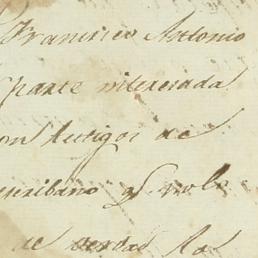 Francisco Antonio
parte interesada
on testigos de
escribano y solo
de verdad la